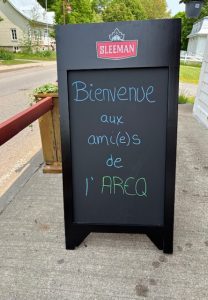 SLEEMAN
Bienvenue
aux
ami(e)s
de
l'AREQ